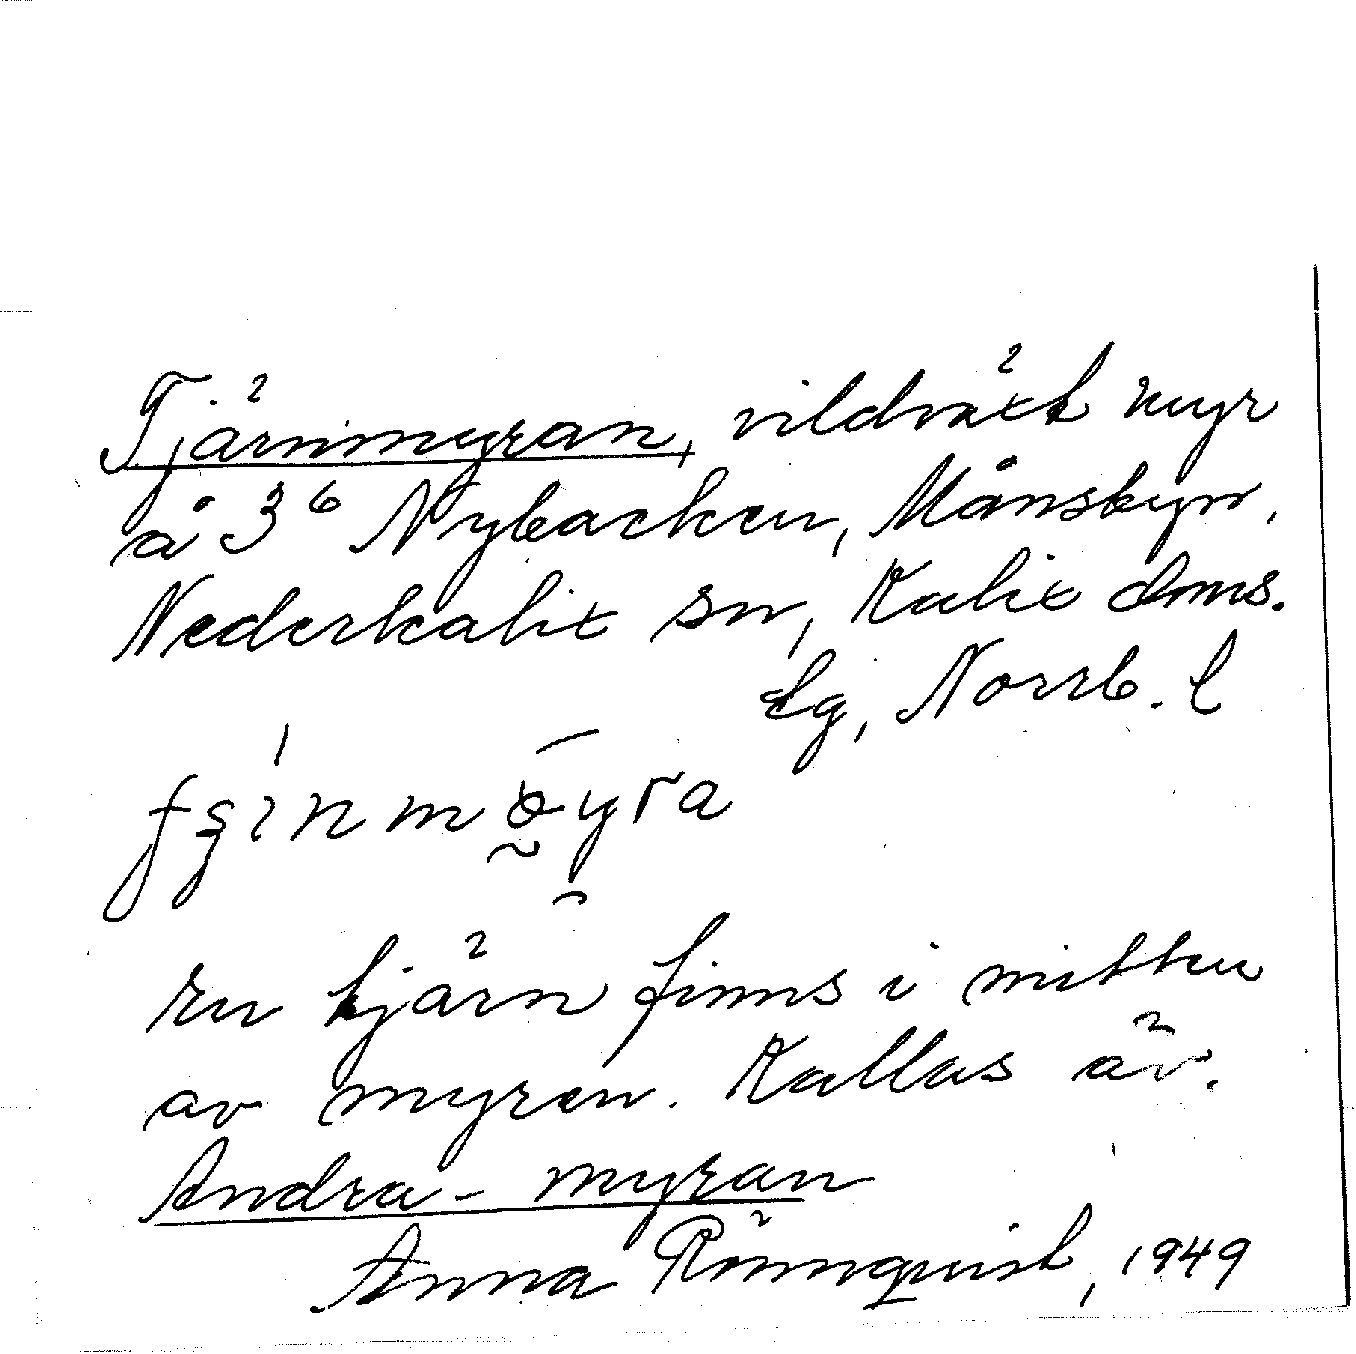 Tjärnmyran, vildväxt myr
å 3⁶ Nybacken, Månsbyn,
Nederkalix sn, Kalix doms.
lg, Norrb. l
en tjärn finns i mitten
av myren. Kallas äv.
Andra-myran
Anna Rönnqvist, 1949